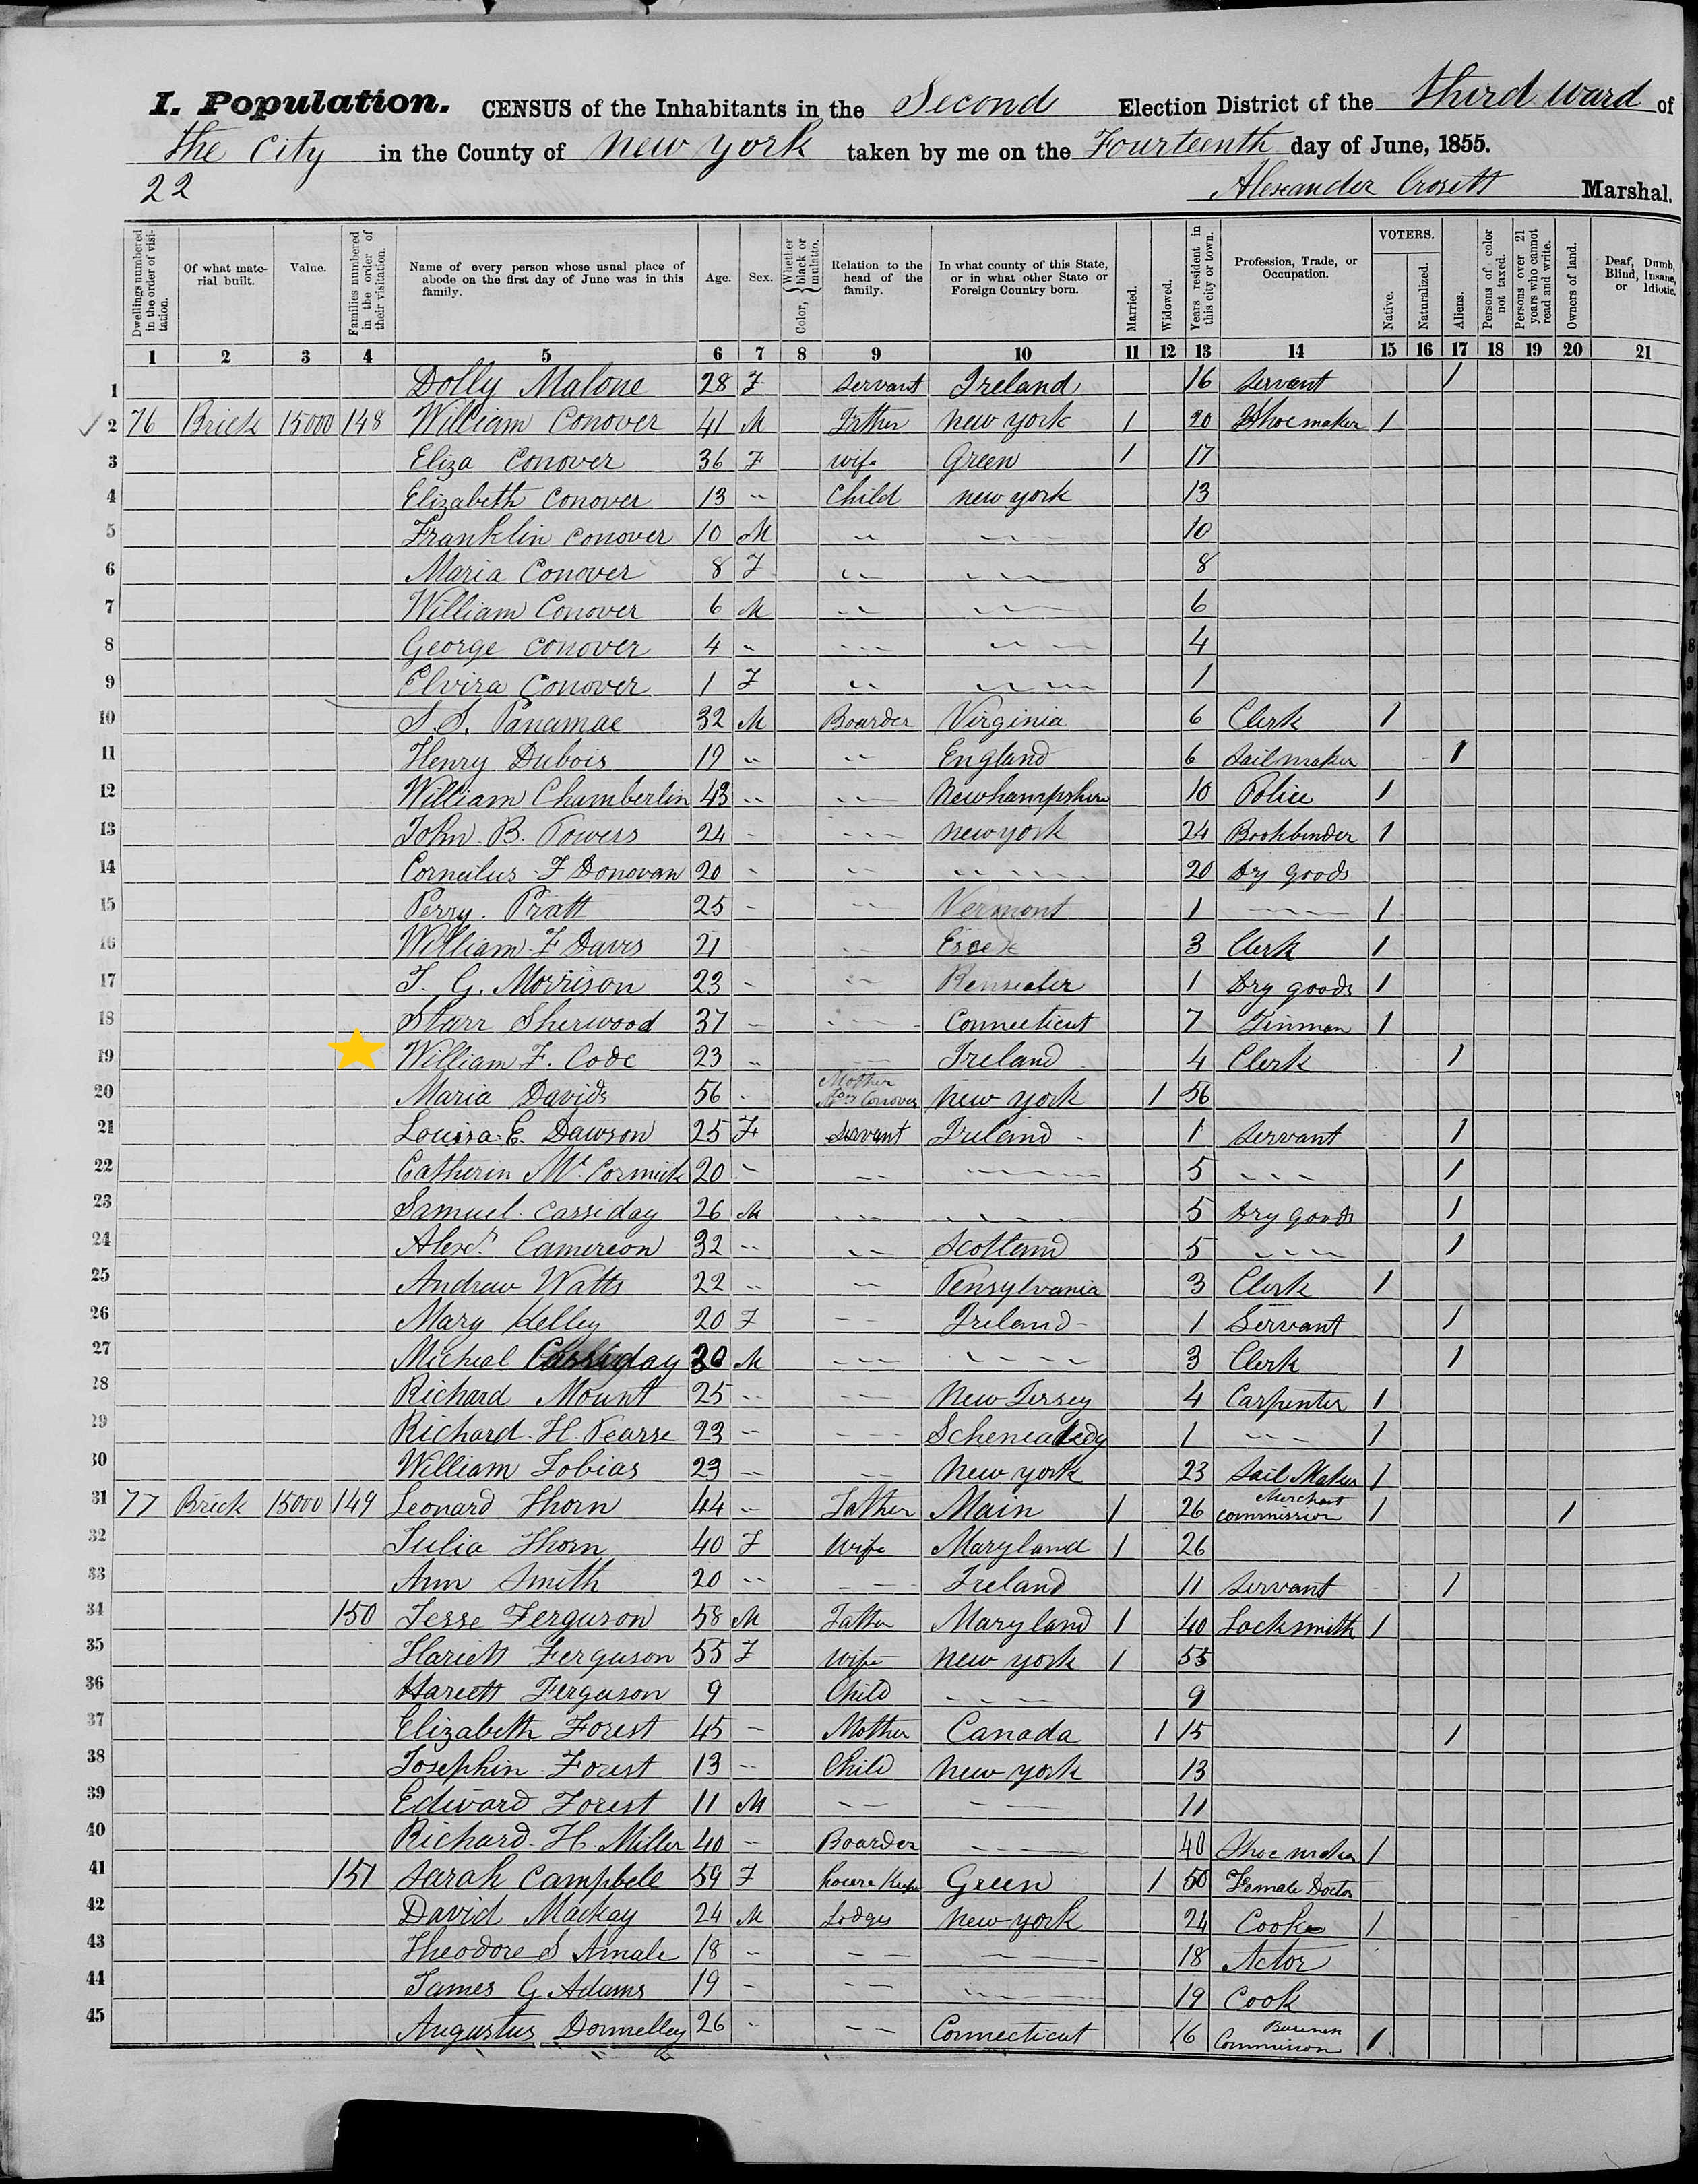 I. Population. CENSUS of the Inhabitants in the Second Election District of the third ward of
the City in the County of new york taken by me on the Fourteenth day of June, 1855.
22 Alexander Crosett Marshal.
Dwellings numbered in the order of visitation. Of what material built. Value. Families numbered in the order of their visitation. Name of every person whose usual place of abode on the first day of June was in this family. Age. Sex. Color, Whether black or mulatto. Relation to the head of the family. In what county of this State, or in what other State or Foreign Country born. Married. Widowed. Years resident in this city or town. Profession, Trade, or Occupation. VOTERS. Native. Naturalized. Aliens. Persons of color not taxed. Persons over 21 years who cannot read and write. Owners of land. Deaf, Dumb, Blind, Insane, or Idiotic.
1 2 3 4 5 6 7 8 9 10 11 12 13 14 15 16 17 18 19 20 21
1 Dolly Malone 28 F servant Ireland 16 servant 1
2 76 Brick 15000 148 William Conover 41 M Father new york 1 20 Shoemaker 1
3 Eliza Conover 36 F wife Green 1 17
4 Elizabeth Conover 13 " Child new york 13
5 Franklin Conover 10 M " " 10
6 Maria Conover 8 F " " 8
7 William Conover 6 M " " 6
8 George Conover 4 " " " 4
9 Elvira Conover 1 F " " 1
10 S. S. Panamae 32 M Boarder Virginia 6 Clerk 1
11 Henry Dubois 19 " " England 6 Sailmaker 1
12 William Chamberlin 43 " " Newhampshire 10 Police 1
13 John B. Powers 24 " " newyork 24 Bookbinder 1
14 Corneilus F Donovan 20 " " " 20 Dry goods
15 Perry Pratt 25 " " Vermont 1 " 1
16 William F Davis 21 " Essex 3 Clerk 1
17 T. G. Morrison 23 " " Rensealer 1 Dry goods 1
18 Starr Sherwood 37 " " Connecticut 7 Tinman 1
19 William F. Code 23 " " Ireland 4 Clerk 1
20 Maria Davids 56 " Mother Mrs Conover new york 1 56
21 Louisa E. Dawson 25 F Servant Ireland 1 servant 1
22 Catherin McCormick 20 " " " 5 " 1
23 Samuel Cassiday 26 M " " 5 Dry goods 1
24 Alexdr Camereon 32 " " Scotland 5 " 1
25 Andrew Watts 22 " " Pensylvania 3 Clerk 1
26 Mary Kelley 20 F " Ireland 1 Servant 1
27 Micheal Cassiday 30 M " " 3 Clerk 1
28 Richard Mount 25 " " New Jersey 4 Carpenter 1
29 Richard H. Pearse 23 " " Scheneadedy 1 " 1
30 William Tobias 23 " " New york 23 Sail Maker 1
31 77 Brick 15000 149 Leonard Thorn 44 " Father Main 1 26 Merchant commission 1 1
32 Julia Thorn 40 F Wife Maryland 1 26
33 Ann Smith 20 " " Ireland 11 servant 1
34 150 Jesse Ferguson 58 M Father Maryland 1 40 Locksmith 1
35 Hariett Ferguson 55 F wife new york 1 55
36 Hareett Ferguson 9 Child " 9
37 Elizabeth Forest 45 " Mother Canada 1 15 1
38 Josephin Forest 13 " Child new york 13
39 Edward Forest 11 M " " 11
40 Richard H. Miller 40 " Boarder " 40 Shoe maker 1
41 151 Sarah Campbell 59 F Green 1 50 Female Doctor
42 David Mackay 24 M Lodges new york 24 Cooke 1
43 Theodore S 18 " " " 18 Actor
44 James G. Adams 19 " " " 19 Cook
45 Augustus Donnelley 26 " " Connecticut 16 Commission 1